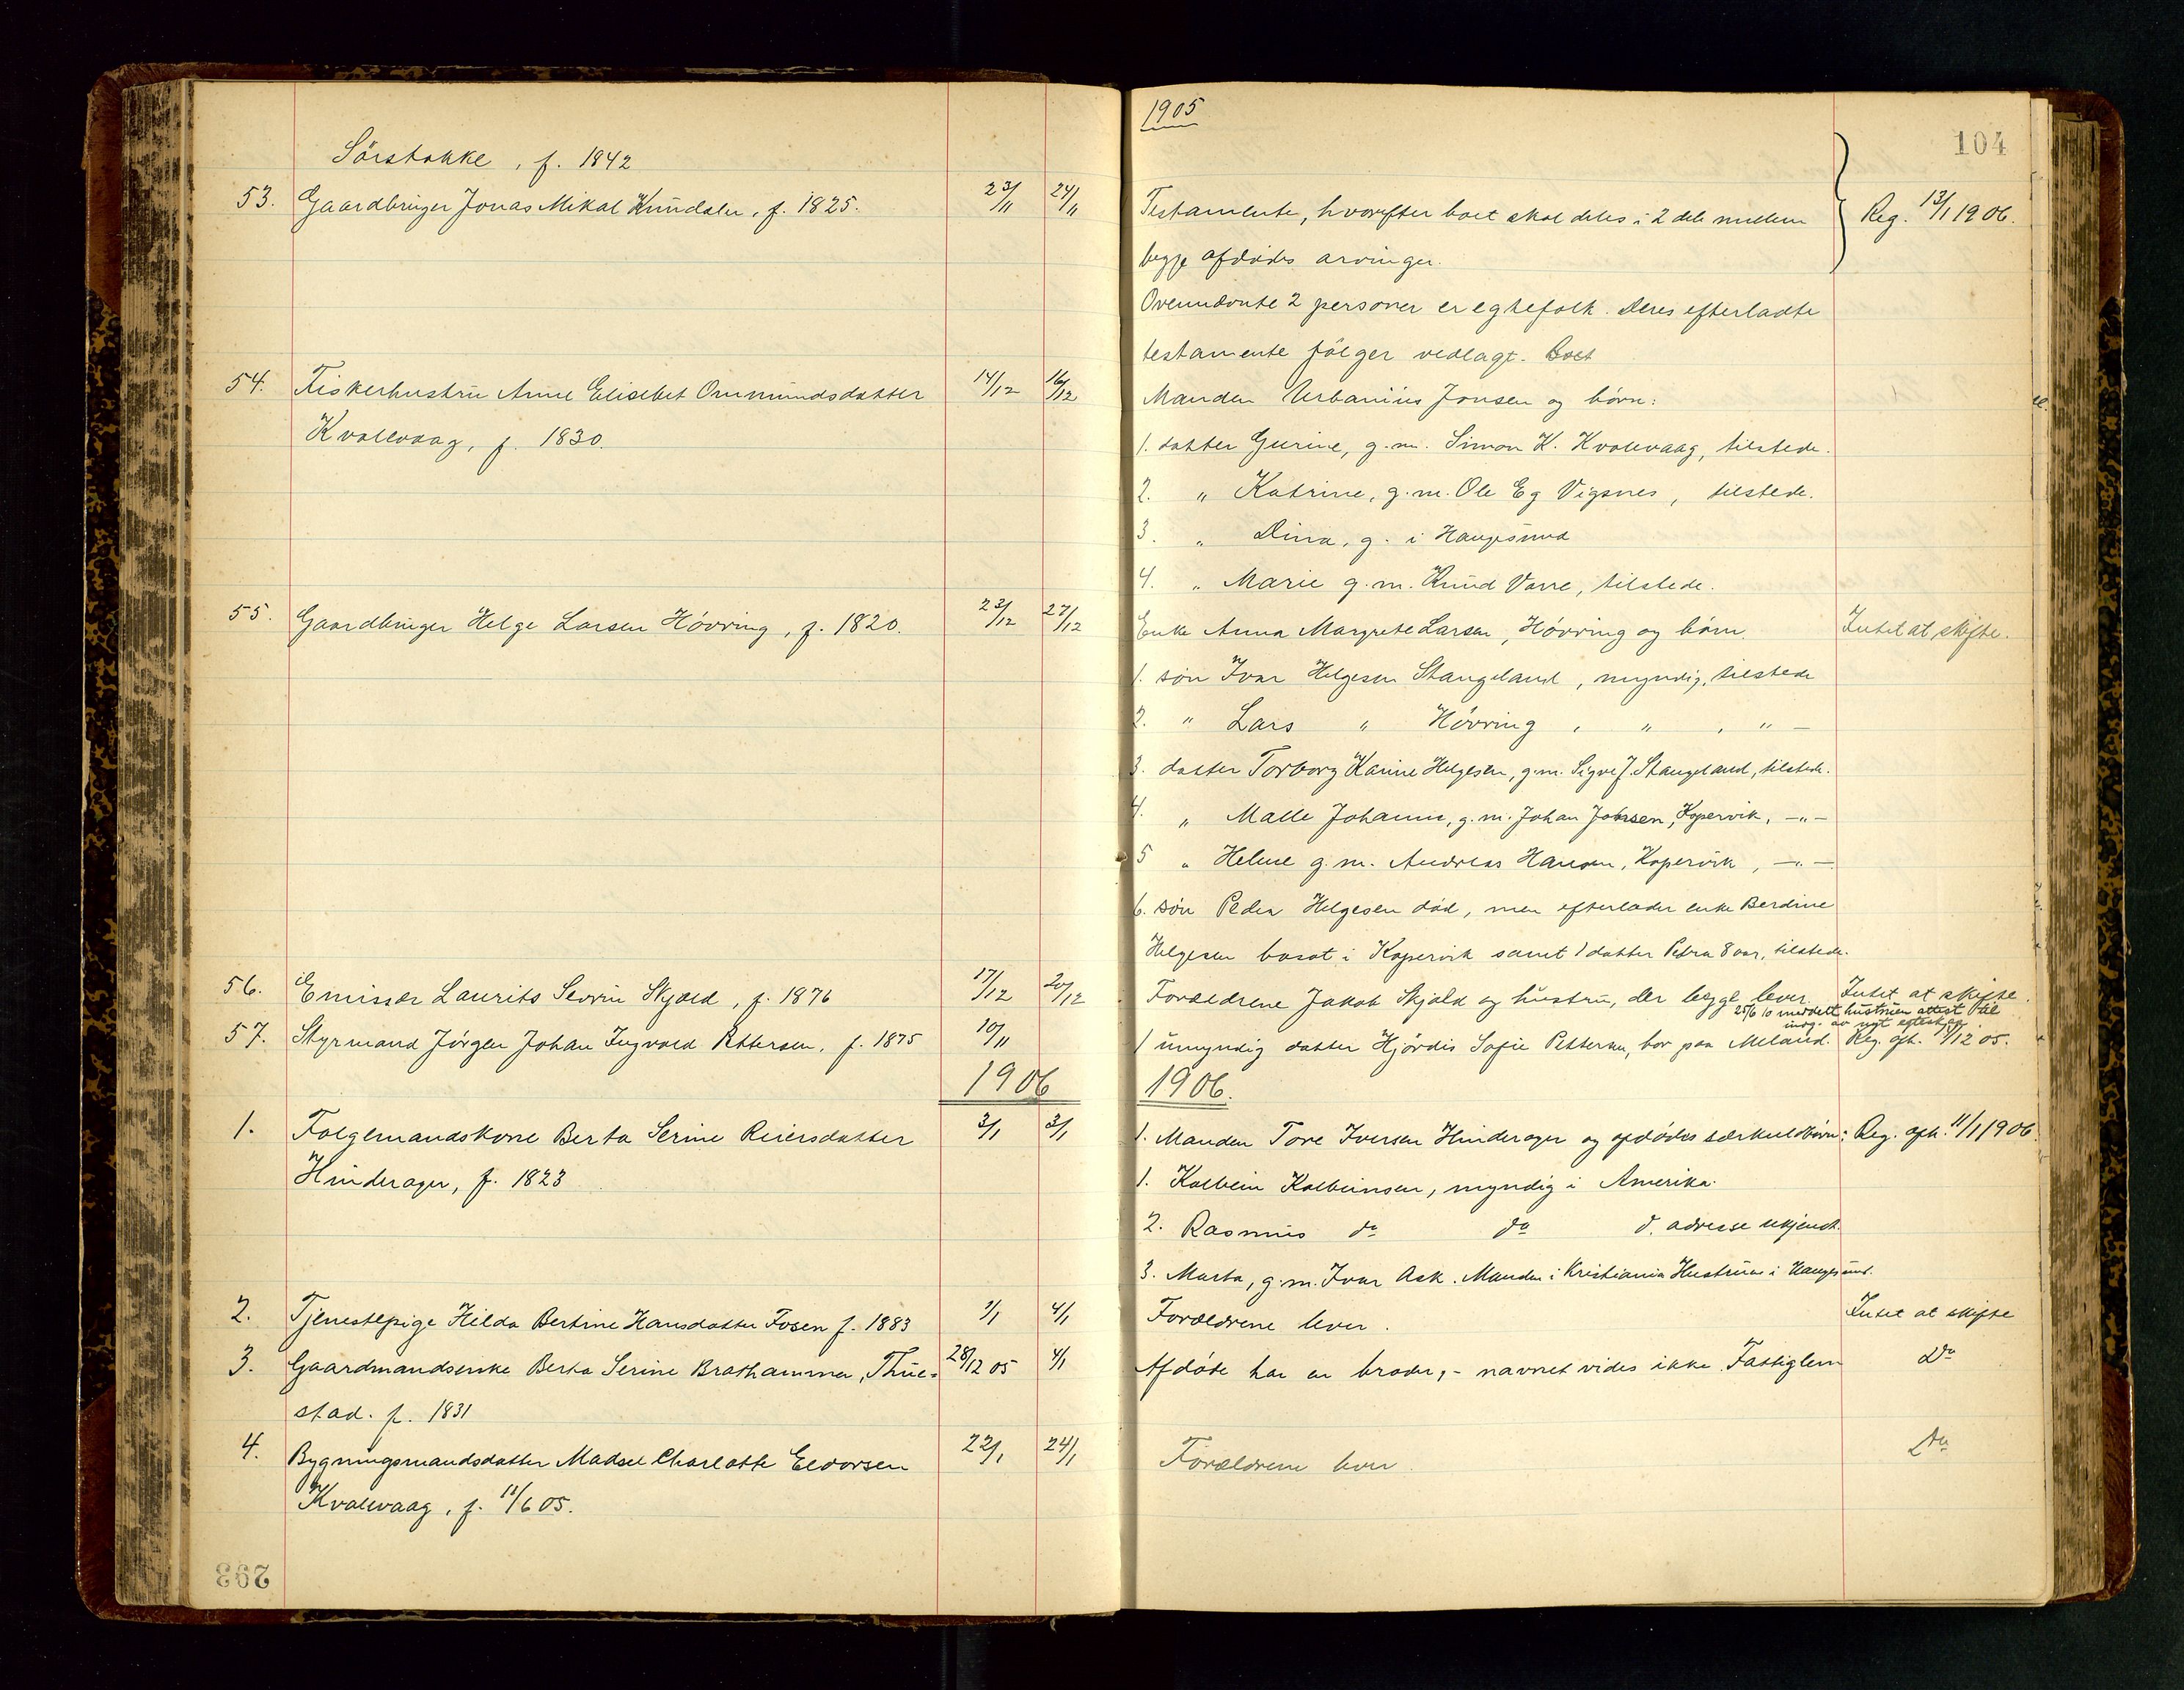 1905
104
Sörstokke, f. 1842
53. Gaardbruger Jonas Mikal Knudsen, f. 1825. 23/11 24/11
Testamente, hvorefter boet skal deles i 2 dele mellem Reg. 13/1 1906.
begge afdødes arvinger.
Ovennævnte 2 personer er egtefolk. Deres efterladte
testamente fölger vedlagt. Boet
54. Fiskerhustru Anne Elisebet Ommundsdatter 14/12 16/12
Manden Urbanius Jonsen og børn:
Kvalevaag, f. 1830.
1. datter Gurine, g. m. Simon K. Kvalevaag, tilstede.
2. " Katrine, g. m. Ole Eg Vigsnes, tilstede.
3. " Dina, g. i Haugesund
4. " Marie g. m. Knud Varre, tilstede.
55. Gaardbruger Helge Larsen Hóvring, f. 1820. 23/12 27/12
Enke Anna Margrete Larsen, Hóvring og börn. Intet at skifte.
1. sön Ivar Helgesen Stangeland, myndig, tilstede
2. " Lars " Hóvring, ", " –
3. datter Torborg Karine Helgesen, g. m. Sigve J. Stangeland, tilstede.
4. " Malle Johanne, g. m. Johan Johnsen, Kopervik, –"–
5 " Helene g. m. Andreas Hansen, Kopervik, –"–
6. sön Peder Helgesen död, men efterlader enke Berdine
Helgesen bosat i Kopervik samt 1 datter Petra 8 aar, tilstede.
56. Emissær Laurits Severin Skjold, f. 1876 17/12 20/12
Forældrene Jakob Skjold og hustru, der begge lever. Intet at skifte.
25/6 10 meddelt hustruen attest til
indg. av nyt egteskap.
57. Styrmand Jørgen Johan Ingvald Pettersen, f. 1875 10/11
1 umyndig datter Hjördis Sofie Pettersen, bor paa Meland. Reg. oph. 11/12 05.
1906
1906.
1. Folgemandskone Berta Serine Reiersdatter 3/1 3/1
1. Manden Tore Iversen Hinderager og afdödes særkuldbörn: Reg. oph. 11/1 1906.
Hinderager, f. 1823
1. Kolbein Kolbeinsen, myndig i Amerika.
2. Rasmus do do d. adresse ukjendt.
3. Marta, g. m. Ivar Ask. Manden i Kristiania Hustruen i Haugesund.
2. Tjenestepige Hilda Bertine Hansdatter Fosen f. 1883 1/1 4/1
Forældrene lever. Intet at skifte
3. Gaardmandsenke Berta Serine Brathammer, Thue= 28/12 05 4/1
Afdøde har en broder, – navnet vides ikke. Fattiglem Do
stad. f. 1831
4. Bygningsmandsdatter Madsel Charlotte Eldorsen 22/1 24/1
Forældrene lever. Do
Kvalevaag, f. 11/6 05.
293